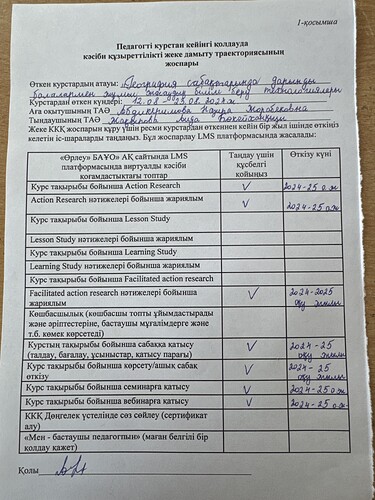 1-қосымша
Педагогті курстан кейінгі қолдауда
кәсіби құзыреттілікті жеке дамыту траекториясының
жоспары
Өткен курстардың атауы: География сабақтарында дарынды
балалармен жұмыс жасаудың білім беру технологиялары
Курстардан өткен күндері: 12.08 - 23.08.2024ж
Аға оқытушының ТАӘ Абдикеримова Назира Жоробековна
Тыңдаушының ТАӘ
Жеке ККҚ жоспарын құру үшін ресми курстардан өткеннен кейін бір жыл ішінде өткіңіз
келетін іс-шараларды таңдаңыз. Бұл жоспарлау LMS платформасында жасалады:
«Өрлеу» БАҰО» АҚ сайтында LMS платформасында виртуалды кәсіби қоғамдастықтағы топтар | Таңдау үшін құсбелгі қойыңыз | Өткізу күні
Курс тақырыбы бойынша Action Research ✓ 2024-25 о.ж
Action Research нәтижелері бойынша жариялым ✓ 2024-25 о.ж
Курс тақырыбы бойынша Lesson Study
Lesson Study нәтижелері бойынша жариялым
Курс тақырыбы бойынша Learning Study
Learning Study нәтижелері бойынша жариялым
Курс тақырыбы бойынша Facilitated action research
Facilitated action research нәтижелері бойынша ✓ 2024-2025
жариялым оқу жылы
Көшбасшылық (көшбасшы топты ұйымдастырады
және әріптестеріне, бастаушы мұғалімдерге және
т.б. көмек көрсетеді)
Курстың тақырыбы бойынша сабаққа қатысу ✓ 2024-25
(талдау, бағалау, ұсыныстар, қатысу парағы) оқу жылы
Курс тақырыбы бойынша көрсету/ашық сабақ ✓ 2024-25
өткізу оқу жылы
Курс тақырыбы бойынша семинарға қатысу ✓ 2024-25 о.ж
Курс тақырыбы бойынша вебинарға қатысу ✓ 2024-25 о.ж
ККҚ Дөңгелек үстелінде сөз сөйлеу (сертификат
алу)
«Мен - бастаушы педагогпын» (маған белгілі бір
қолдау қажет)
Қолы